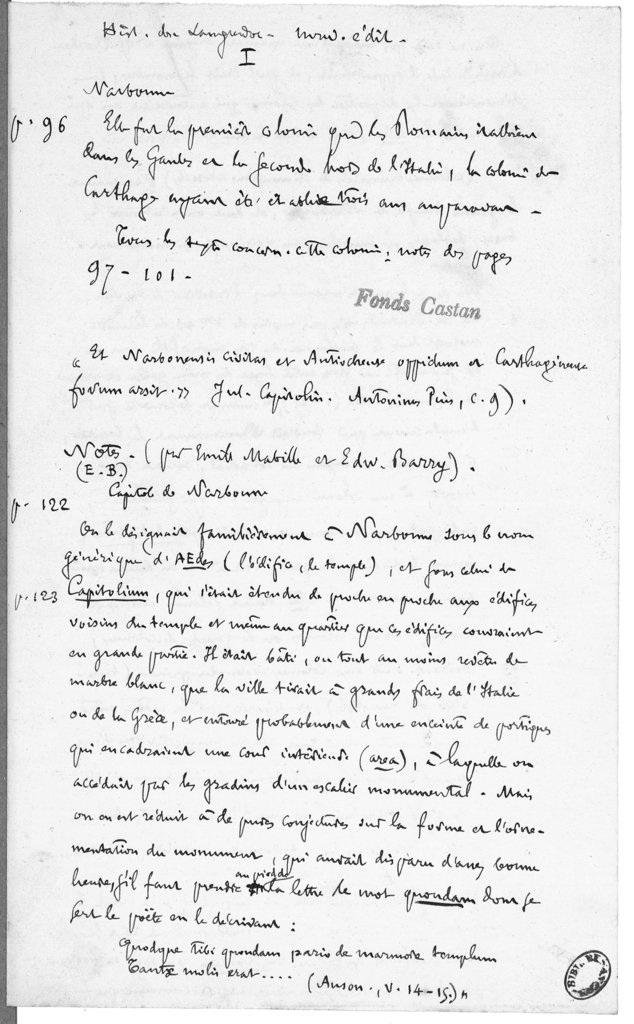 Hist. du Languedoc - nouv. édit -
I
Narbonne
p. 96 Elle fut la première colonie que les Romains établirent
dans les Gaules et la seconde hors de l'Italie, la colonie de
Carthage ayant été établie trois ans auparavant -
Tous les textes concern. cette colonie: notes des pages
97 - 101 -
Fonds Castan
« Et Narbonensis civitas et Antiochense oppidum et Carthaginense
forum arsit. » Jul. Capitolin. Antoninus Pius, c. 9).
Notes - (par Emile Mabille et Edw. Barry).
(E. B.)
Capitole de Narbonne
p. 122
On le désignait familièrement à Narbonne sous le nom
générique d'AEdes (l'édifice, le temple), et sous celui de
p. 123 Capitolium, qui s'était étendu de proche en proche aux édifices
voisins du temple et même au quartier que ces édifices couvraient
en grande partie. Il était bâti, ou tout au moins revêtu de
marbre blanc, que la ville tirait à grands frais de l'Italie
ou de la Grèce, et entouré probablement d'une enceinte de portiques
qui encadraient une cour intérieure (area), à laquelle on
accédait par les gradins d'un escalier monumental - Mais
on en est réduit à de pures conjectures sur la forme et l'orne-
mentation du monument, qui aurait disparu d'assez bonne
heure, s'il faut prendre au pied de la lettre le mot quondam dont se
sert le poëte en le décrivant:
Quodque tibi quondam pario de marmore templum
Tantae molis erat....
(Auson., v. 14-15.) »